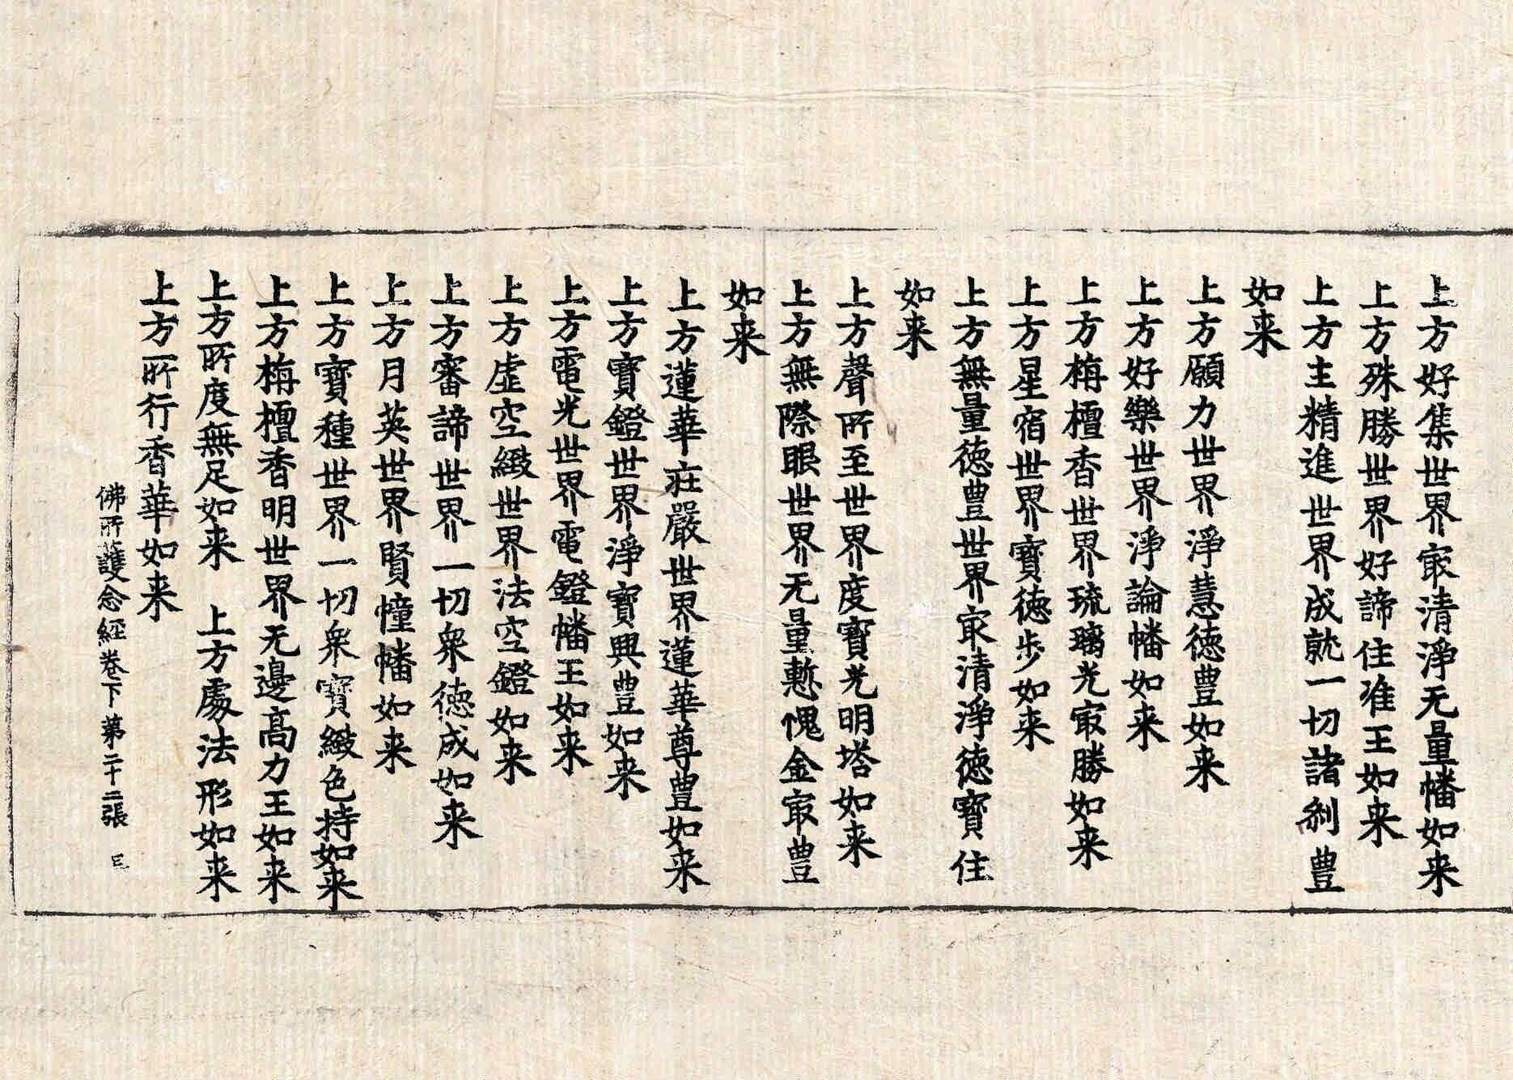 上方好集世界㝡清淨无量幡如来
上方殊勝世界好諦住准王如来
上方主精進世界成就一切諸剎豊
如来
上方願力世界淨慧徳豊如来
上方好樂世界淨論幡如来
上方栴檀香世界琉璃光㝡勝如来
上方星宿世界寳徳步如来
上方無量徳豊世界㝡清淨徳寳住
如来
上方聲所至世界度寳光明塔如来
上方無際眼世界无量慙愧金㝡豊
如来
上方蓮華莊嚴世界蓮華尊豊如来
上方寳鐙世界淨寳興豊如来
上方電光世界電鐙幡王如来
上方虛空緻世界法空鐙如来
上方審諦世界一切衆徳成如来
上方月英世界賢幢幡如来
上方寳種世界一切衆寳緻色持如来
上方栴檀香明世界无邊高力王如来
上方所度無足如来　上方處法形如来
上方所行香華如来
佛所護念經卷下第二十二張